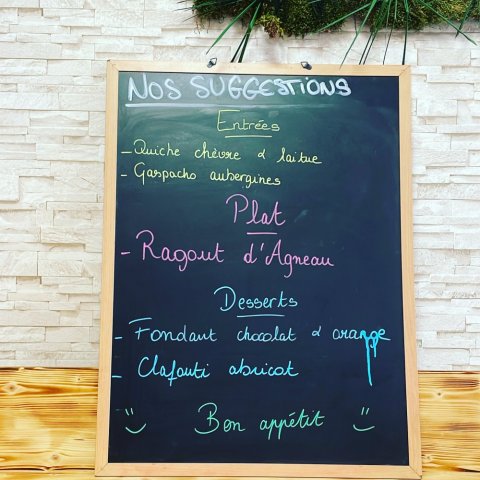 NOS SUGGESTIONS
Entrées
- Quiche chèvre & laitue
- Gaspacho aubergines
Plat
- Ragout d'Agneau
Desserts
- Fondant chocolat & orange
- Clafouti abricot
Bon appétit